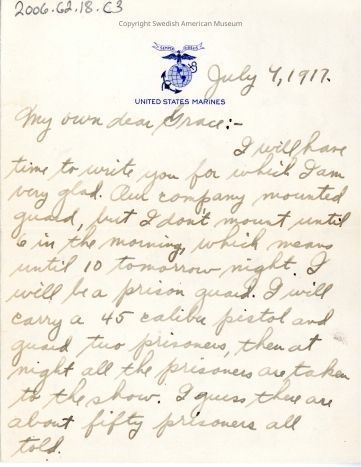 2006.62.18.C3
Copyright Swedish American Museum
SEMPER FIDELIS
UNITED STATES MARINES
July 4, 1917.
My own dear Grace:-
I will have
time to write you for which I am
very glad. Our company mounted
guard, but I don't mount until
6 in the morning, which means
until 10 tomorrow night. I
will be a prison guard. I will
carry a 45 calibu pistol and
guard two prisoners, then at
night all the prisoners are taken
to the show. I guess there are
about fifty prisoners all
told.